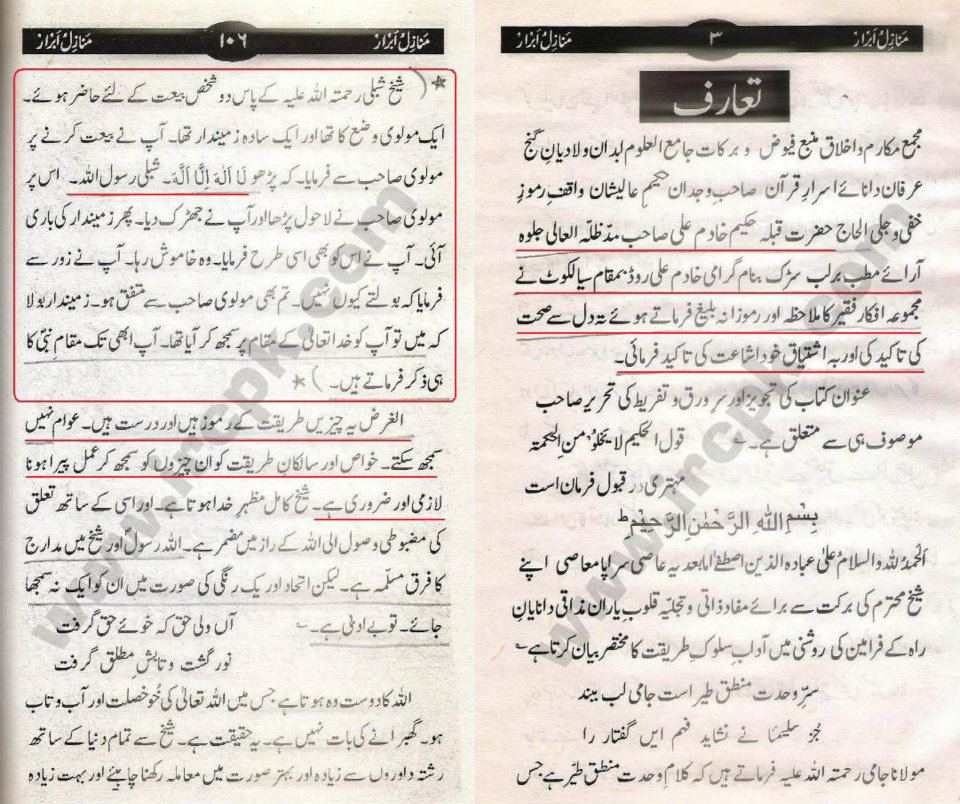 منازلِ ابرار ۳ منازلِ ابرار
تعارف
مجمع مکارم و اخلاق منبع فیوض و برکات جامع العلوم لبدان ولادیانِ گنج
عرفان دانائے اسرارِ قرآن صاحبِ وجدان حکیمِ عالیشان واقفِ رموزِ
خفی و جلی الحاج حضرت قبلہ حکیم خادم علی صاحب مدّظلہ العالی جلوہ
آرائے مطب برلب سڑک بنام گرامی خادم علی روڈ بمقام سیالکوٹ نے
مجموعہ افکارِ فقیر کا ملاحظہ اور رموزانہ بلیغ فرماتے ہوئے تہ دل سے صحت
کی تاکید کی اور بہ اشتیاق خود اشاعت کی تاکید فرمائی۔
عنوان کتاب کی تجویز اور سرورق و تفریط کی تحریر صاحب
موصوف ہی سے متعلق ہے۔ قول الحکیم لا یخلو من الحکمۃ
مہتری در قبول فرمان است
بِسْمِ اللهِ الرَّحْمٰنِ الرَّحِيْمِ ط
الحمدُ للہ والسلامُ علیٰ عبادہ الذین اصطفےٰ امابعد یہ عاصی سراپا معاصی اپنے
شیخ محترم کی برکت سے برائے مفاد ذاتی و تجلیہ قلوبِ یاران مذاتی و دانایانِ
راہ کے فرامین کی روشنی میں آداب سلوکِ طریقت کا مختصر بیان کرتا ہے
سرّ وحدت منطق طیر است جامی لب ببند
جز سلیماںؑ نے نشاید فہم ایں گفتار را
مولانا جامی رحمتہ اللہ علیہ فرماتے ہیں کہ کلام وحدت منطق طیر ہے جس
منازلِ ابرار ۱۰۶ منازلِ ابرار
*( شیخ شبلی رحمتہ اللہ علیہ کے پاس دو شخص بیعت کے لئے حاضر ہوئے۔
ایک مولوی وضع کا تھا اور ایک سادہ زمیندار تھا۔ آپ نے بیعت کرنے پر
مولوی صاحب سے فرمایا۔ کہ پڑھو لَا اِلٰهَ اِلَّا اللّٰهُ۔ شبلی رسول اللہ۔ اس پر
مولوی صاحب نے لاحول پڑھا اور آپ نے جھڑک دیا۔ پھر زمیندار کی باری
آئی۔ آپ نے اس کو بھی اسی طرح فرمایا۔ وہ خاموش رہا۔ آپ نے زور سے
فرمایا کہ بولتے کیوں نہیں۔ تم بھی مولوی صاحب سے متفق ہو۔ زمیندار بولا
کہ میں تو آپ کو خدا تعالیٰ کے مقام پر سمجھ کر آیا تھا۔ آپ ابھی تک مقام نبیؐ کا
ہی ذکر فرماتے ہیں۔ )*
الغرض یہ چیزیں طریقت کے رموز ہیں اور درست ہیں۔ عوام نہیں
سمجھ سکتے۔ خواص اور سالکانِ طریقت کو ان چیزوں کو سمجھ کر عمل پیرا ہونا
لازمی اور ضروری ہے۔ شیخ کامل مظہرِ خدا ہوتا ہے۔ اور اسی کے ساتھ تعلق
کی مضبوطی وصول الی اللہ کے راز میں مضمر ہے۔ اللہ رسولؐ اور شیخ میں مدارج
کا فرق مسلّمہ ہے۔ لیکن اتحاد اور یک رنگی کی صورت میں ان کو ایک نہ سمجھا
جائے۔ تو بے ادبی ہے۔
آں ولی حق کہ خوئے حق گرفت
نور گشت و تابشِ مطلق گرفت
اللہ کا دوست وہ ہوتا ہے جس میں اللہ تعالیٰ کی خُو خصلت اور آب و تاب
ہو۔ گھبرانے کی بات نہیں ہے۔ یہ حقیقت ہے۔ شیخ سے تمام دنیا کے ساتھ
رشتہ داروں سے زیادہ اور بہتر صورت میں معاملہ رکھنا چاہئے اور بہت زیادہ